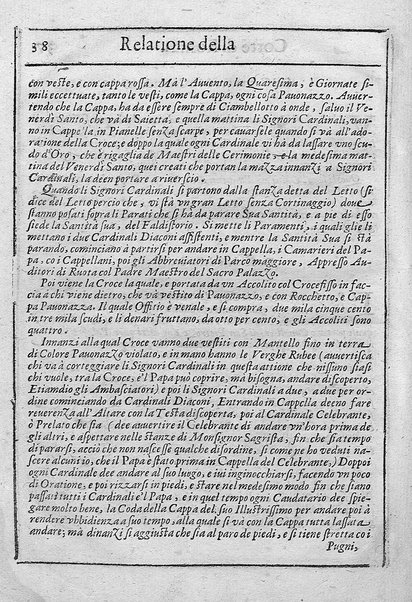 38 Relatione della
con veste, e con cappa rossa. Mà l'Auuento, la Quaresima, è Giornate si-
mili eccettuate, tanto le vesti, come la Cappa, ogni cosa Pauonazzo. Auuer-
tendo che la Cappa, hà da essere sempre di Ciambellotto à onde, saluo il Ve-
nerdì Santo, che và di Saietta, e quella mattina li Signori Cardinali, van-
no in Cappe la in Pianelle senza scarpe, per cauarsele quando si và all'ado-
ratione della Croce; e doppo la quale ogni Cardinale vi hà da lassare vno scu-
do d'Oro, che è rigaglia de Maestri delle Cerimonie, e la medesima mat-
tina del Venerdì Santo, quei creati che portan la mazza innanzi a Signori
Cardinali, la deen portare a rouerscio.
Quando li Signori Cardinali si partono dalla stanza detta del Letto (si
dice del Letto perciò che, vi stà vn gran Letto senza Cortinaggio) doue
stanno posati sopra li Parati che si hà da parare Sua Santità, e a piè di esso
siede la Santità sua, del Faldistorio. Si mette li Paramenti, i quali glie li
mettano i due Cardinali Diaconi assistenti, e mentre la Santità Sua si stà
parando, cominciano à partirsi per andare in Cappella, i Camarieri del Pa-
pa, coi Cappellani, poi gli Abbreuiatori di Parco maggiore, Appresso Au-
ditori di Ruota col Padre Maestro del Sacro Palazzo.
Poi viene la Croce la quale, e portata da vn Accolito col Crocefisso in fac-
cia à chi viene dietro, che và vestito di Pauonazzo, e con Rocchetto, e Cap-
pa Pauonazza. Il quale Offitio è venale, e si compra, due mila cinque cento
in tre mila scudi, e li denari fruttano, da otto per cento, e gli Accoliti sono
quattro.
Innanzi alla qual Croce vanno due vestiti con Mantello fino in terra
di Colore Pauonazzo violato, e in mano hanno le Verghe Rubee (auuertiscà
chi và à corteggiare li Signori Cardinali in questa attione che nissuno si asi
chi vuole, tra la Croce, e'l Papa può coprire, ma bisogna, andare discoperto,
Etiamdio gli Ambasciatori) e poi li Signori Cardinali a due, a due per or-
dine cominciando da Cardinali Diaconi, Entrando in Cappella deeno fare
reuerenza all'Altare con la Testa discoperta, poi al Cardinale Celebrante,
ò Prelato che sia (dee auuertire il Celebrante di andare vn'hora prima de
gli altri, e aspettare nelle stanze di Monsignor Sagrista, fin che sia tempo
di pararsi, acciò che non nascesse qualche disordine, si come ne hò veduti na-
scere alcuni io, che il Papa è stato prima in Cappella del Celebrante,) Doppoi
ogni Cardinale dee andare al suo luogo, e iui inginocchiarsi, facendo vn poco
di Oratione, e poi rizzarsi in piedi, e stare nel medesimo modo fin che siano
passati tutti i Cardinali e'l Papa, e in quel tempo ogni Caudatario dee spie-
gare molto bene, la Coda della Cappa del suo Illustrissimo per andare poi à
rendere vbbidienza a suo tempo, alla quale si và con la Cappa tutta lassata
andare; mà dinanzi si aggiusta che sia al paro de piedi, e si tiene stretta coi
Pugni,